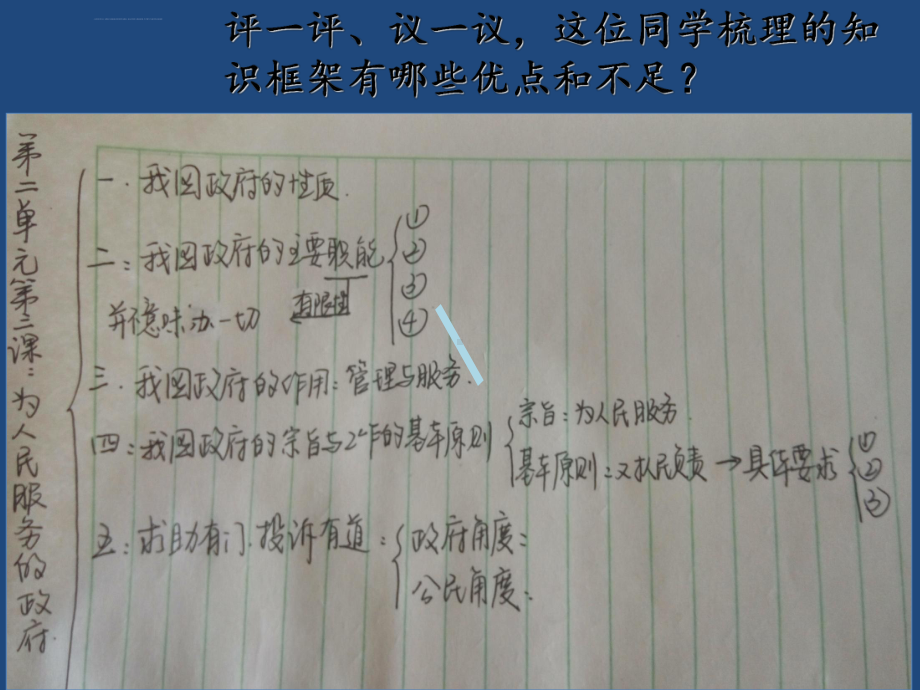 评一评、议一议，这位同学梳理的知
识框架有哪些优点和不足？
第二单元第三课：为人民服务的政府
一．我国政府的性质．
二：我国政府的主要职能 ① ② ③ ④
有限性
并不意味办一切
三．我国政府的作用：管理与服务．
四：我国政府的宗旨与工作的基本原则
宗旨：为人民服务．
基本原则：对人民负责→具体要求 ① ② ③
五：求助有门．投诉有道：
政府角度：
公民角度：